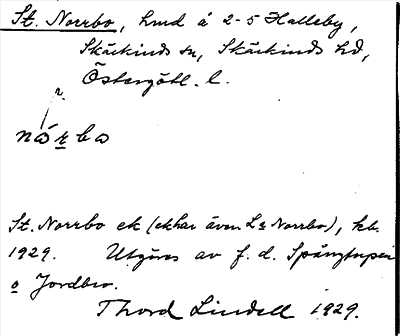 St. Norrbo, hmd å 2-5 Halleby,
Skärkinds sn, Skärkinds hd,
Östergötl. l.
nå r b o
St. Norrbo ek (ek har även L:a Norrbo), kb.
1929. Utgöres av f. d. Spångtorpen
o Jordbro.
Thord Lindell 1929.